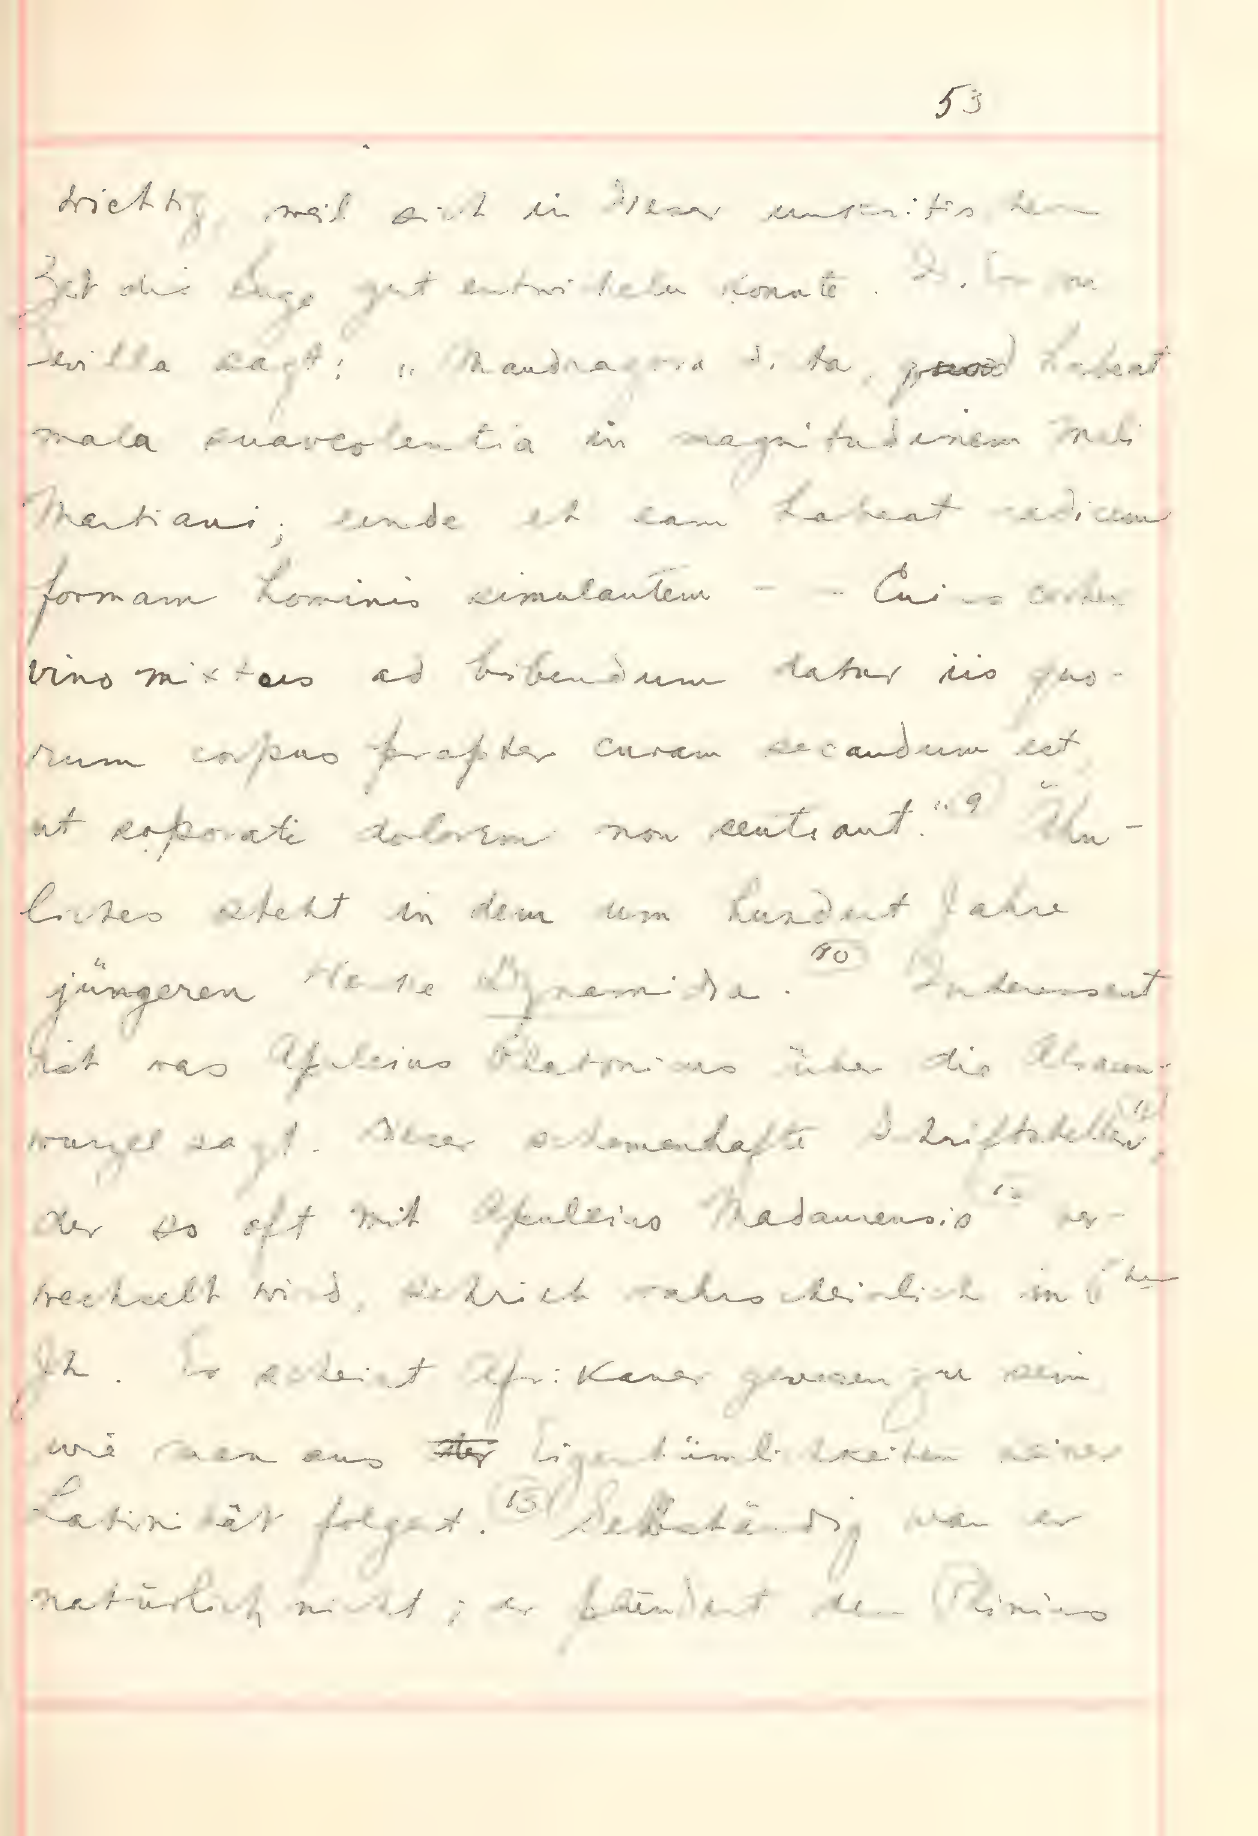 53
wichtig, weil sich in dieser unkritischen
Zeit die Sage gut entwickeln konnte. Is. von
Sevilla sagt: „Mandragora dicta, quod habeat
mala suaveolentia in magnitudinem Mali
Martiani; unde et eam habeat radicem
formam hominis simulantem - - Cuius cortex
vino mixtus ad bibendum datur iis quo-
rum corpus propter curam secandum est,
ut soporati dolorem non sentiant." 9 Ähn-
liches steht in dem um hundert Jahre
jüngeren Werke Dynamidia. 10 Interessant
ist was Apuleius Platonicus über die Alraun-
wurzel sagt. Dieser schemenhafte Schriftsteller 11,
der so oft mit Apuleius Madaurensis 12 ver-
wechselt wird, schrieb wahrscheinlich im 5ten
Jh. Er scheint Afrikaner gewesen zu sein
wie man aus Eigentümlichkeiten seiner
Latinität folgert. 13 Selbständig war er
natürlich nicht; er plündert den Plinius